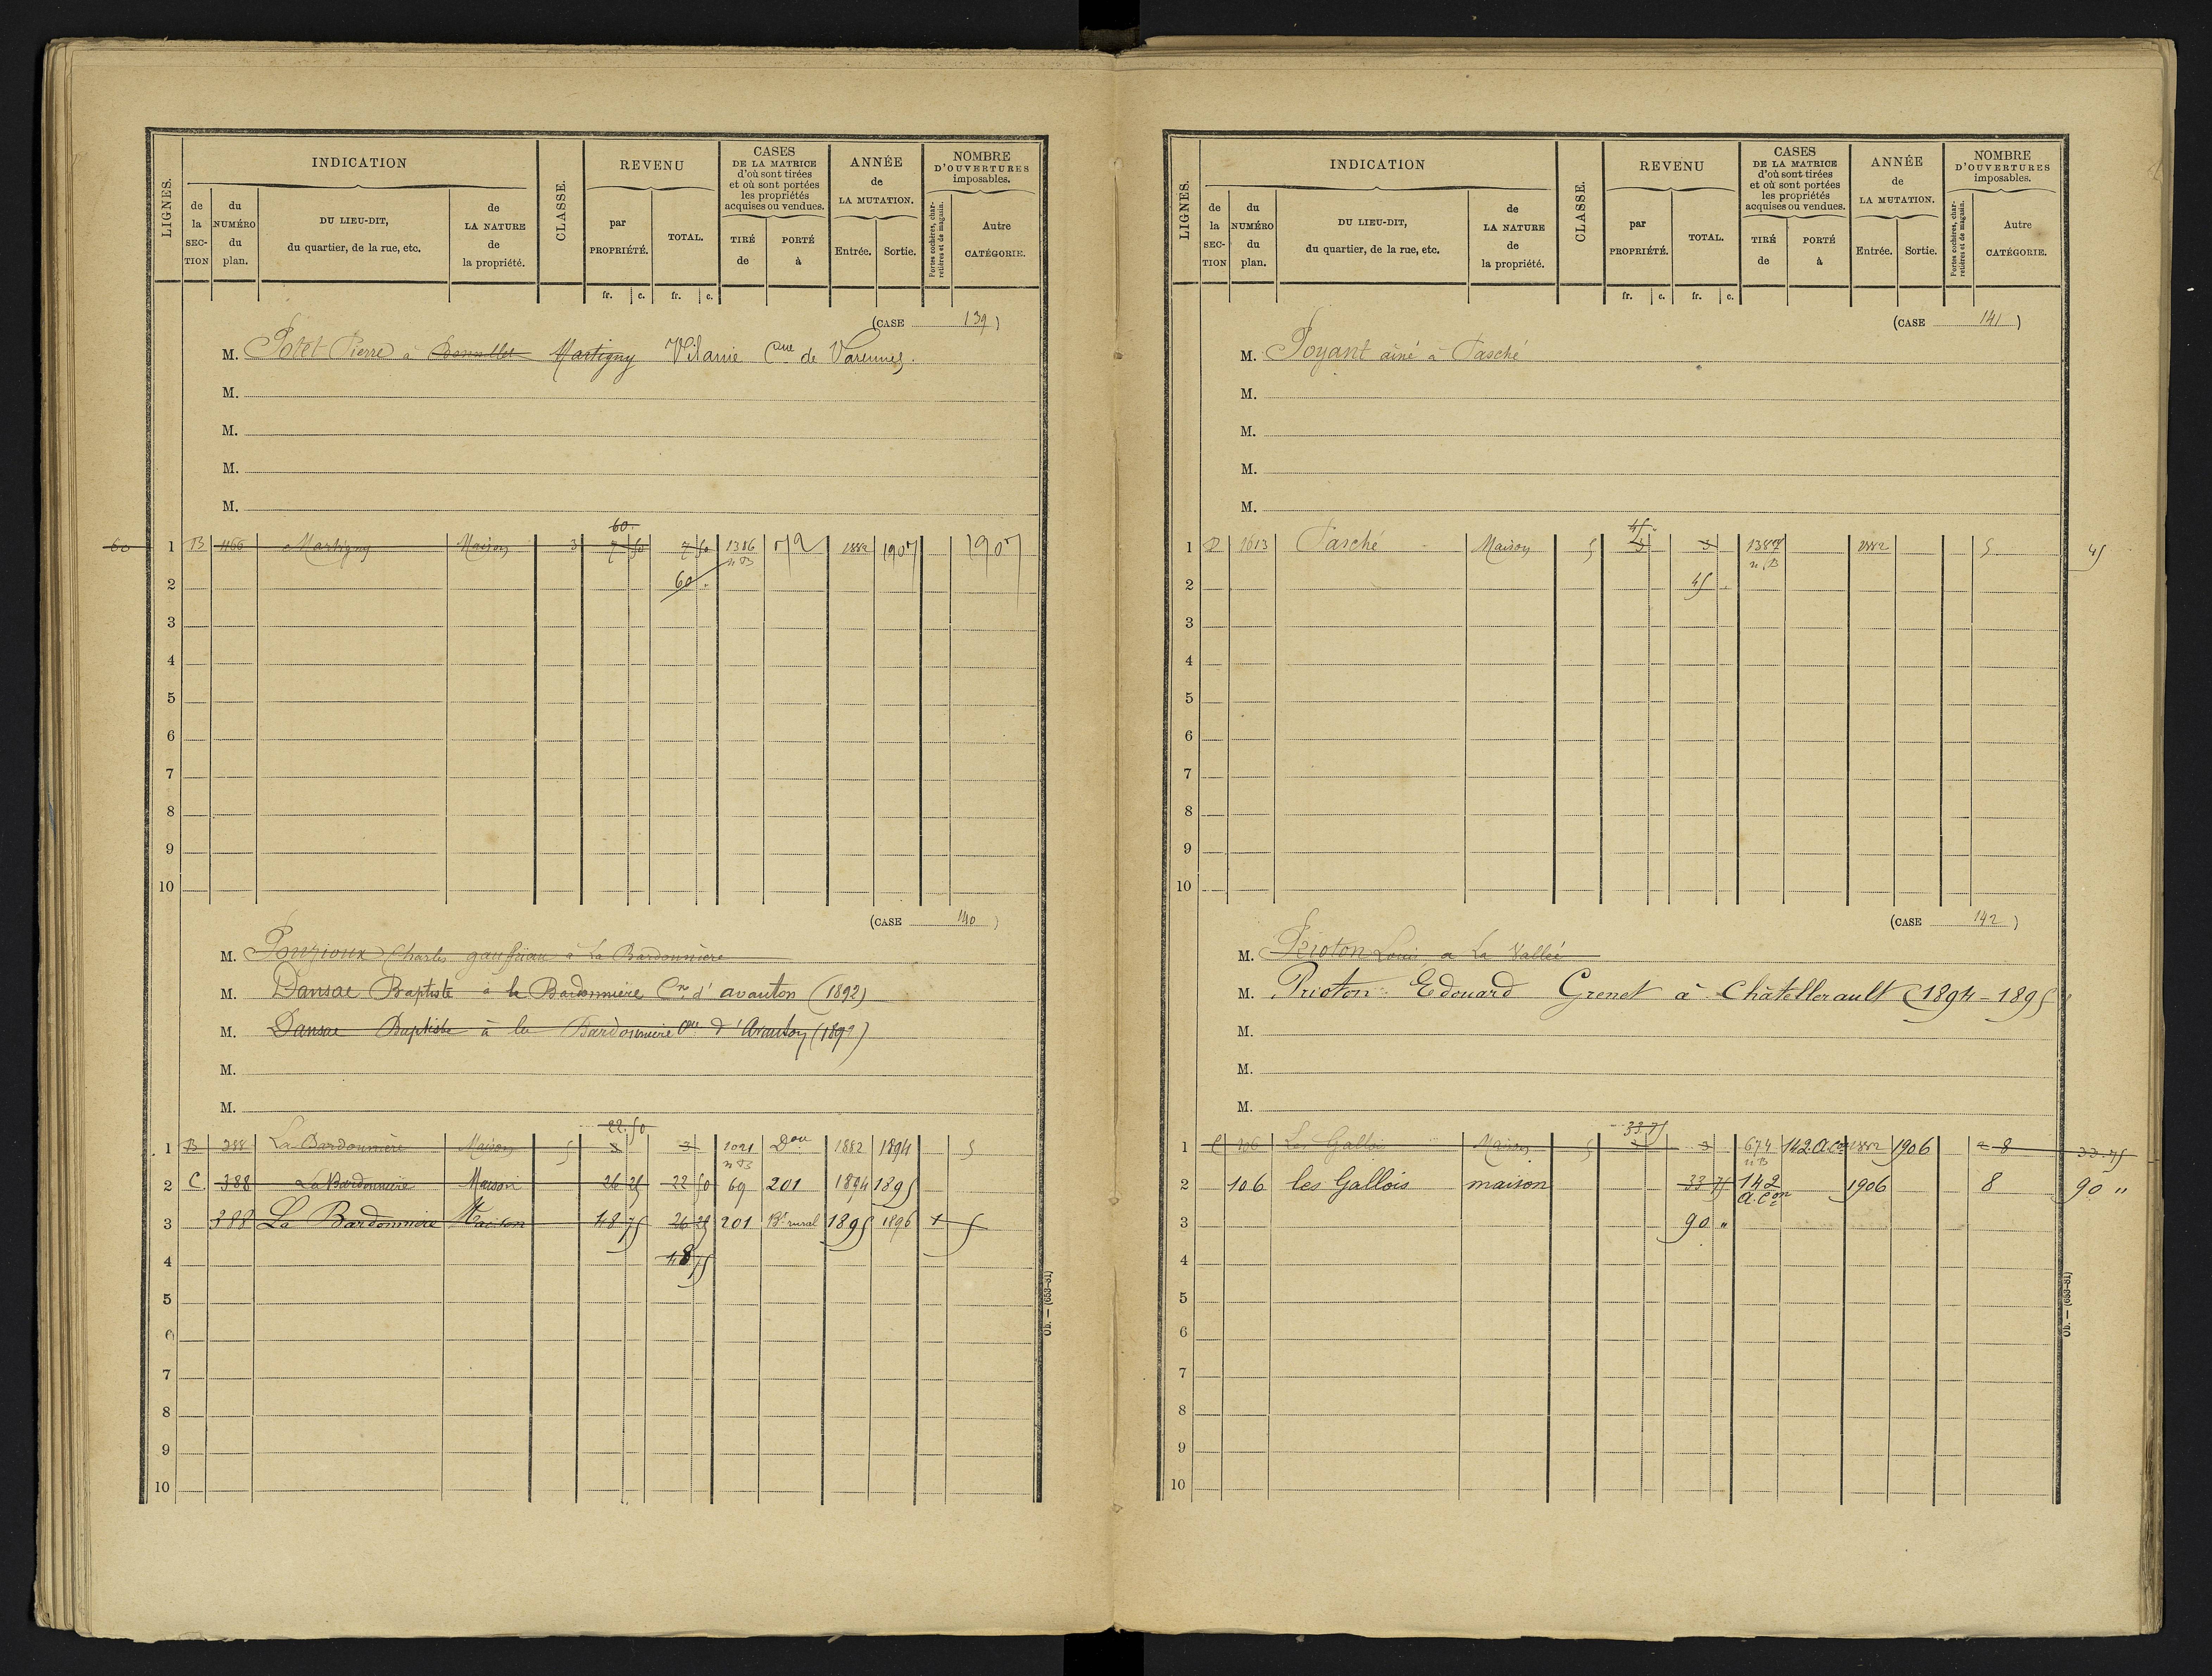 LIGNES.
INDICATION
CLASSE.
REVENU
CASES
DE LA MATRICE
d'où sont tirées
et où sont portées
les propriétés
acquises ou vendues.
ANNÉE
de
LA MUTATION.
NOMBRE
D'OUVERTURES
imposables.
de la SECTION
du NUMÉRO du plan.
DU LIEU-DIT,
du quartier, de la rue, etc.
de LA NATURE de la propriété.
par PROPRIÉTÉ.
TOTAL.
TIRÉ de
PORTÉ à
Entrée.
Sortie.
Portes cochères, charretières et de magasin.
Autre CATÉGORIE.
fr. c. fr. c.
(CASE 139)
M. Potet Pierre à Martigny Vilanie Cne de Varennes.
M.
M.
M.
M.
60.
60 1 B 466 Martigny Maison 3 7 50 7 50 1386 72 1882 1907 1907
n B
2 60 .
3
4
5
6
7
8
9
10
(CASE 140)
M. Pouzioux Charles à La Bardonnière
M. Dansac Baptiste à la Bardonnière Cne d'avanton (1892)
M. Dansac Baptiste à la Bardonnière Cne d'Avanton (1892)
M.
M.
22.50
1 B 388 La Bardonnière Maison 5 3 3 1021 Dou 1882 1894 5
n B
2 C 388 La Bardonnière Maison 26 25 22 50 69 201 1894 1895
3 388 La Bardonnière Maison 48 75 26 25 201 Bt rural 1895 1896 1 5
4 48 75
5
6
7
8
9
10
Ob. — (653-81)
LIGNES.
INDICATION
CLASSE.
REVENU
CASES
DE LA MATRICE
d'où sont tirées
et où sont portées
les propriétés
acquises ou vendues.
ANNÉE
de
LA MUTATION.
NOMBRE
D'OUVERTURES
imposables.
de la SECTION
du NUMÉRO du plan.
DU LIEU-DIT,
du quartier, de la rue, etc.
de LA NATURE de la propriété.
par PROPRIÉTÉ.
TOTAL.
TIRÉ de
PORTÉ à
Entrée.
Sortie.
Portes cochères, charretières et de magasin.
Autre CATÉGORIE.
fr. c. fr. c.
(CASE 141)
M. Poyant aîné à Pasché
M.
M.
M.
M.
45
1 D 1613 Pasché Maison 5 3 3 1387 1882 5 45
n. B
2 45 .
3
4
5
6
7
8
9
10
(CASE 142)
M. Prioton Louis a La Vallée
M. Prioton Edouard Grenet à Châtellerault (1894-1895
M.
M.
M.
33.75
1 C 106 Les Gallois Maison 5 3 3 674 142 a.con 1882 1906 2 8 33.75
n B
2 106 les Gallois maison 33 75 142 1906 8 90 "
a.con
3 90 "
4
5
6
7
8
9
10
Ob. — (653-81)